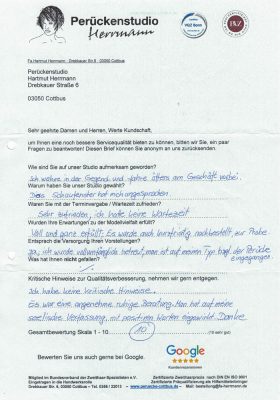 Perückenstudio
Herrmann
Fa.Hartmut Herrmann · Drebkauer Str.6 · 03050 Cottbus
Perückenstudio
Hartmut Herrmann
Drebkauer Straße 6
03050 Cottbus
Sehr geehrte Damen und Herren, Werte Kundschaft,
um Ihnen eine noch bessere Servicequalität bieten zu können, bitten wir Sie, ein paar
Fragen zu beantworten! Diesen Brief können Sie anonym an uns zurücksenden.
Wie sind Sie auf unser Studio aufmerksam geworden?
Ich wohne in der Gegend und fahre öfters am Geschäft vorbei.
Warum haben Sie unser Studio gewählt?
Das Schaufenster hat mich angesprochen.
Waren Sie mit der Terminvergabe / Wartezeit zufrieden?
Sehr zufrieden, ich hatte keine Wartezeit
Wurden Ihre Erwartungen zu der Modellvielfalt erfüllt?
Voll und ganz erfüllt! Es wurde auch kurzfristig nachbestellt zur Probe
Entsprach die Versorgung Ihren Vorstellungen?
Ja, ich wurde vollumfänglich betreut, man ist auf meinen Typ bzgl. der Perücke
eingegangen.
Was hat Ihnen nicht gefallen?
Kritische Hinweise zur Qualitätsverbesserung, nehmen wir gern entgegen.
Ich habe keine kritische Hinweise.
Es war eine angenehme ruhige Beratung. Man hat auf meine
seelische Verfassung mit positiven Worten eingewirkt. Danke
Gesamtbewertung Skala 1 - 10
10
(10 sehr gut)
Bewerten Sie uns auch gerne bei Google.
Google
Kundenrezensionen
Mitglied im Bundesverband der Zweithaar-Spezialisten e.V.
Zertifizierte Zweithaarpraxis nach DIN EN ISO 9001
Eingetragen in die Handwerksrolle
Zertifizierte Präqualifizierung als Hilfsmittelerbringer